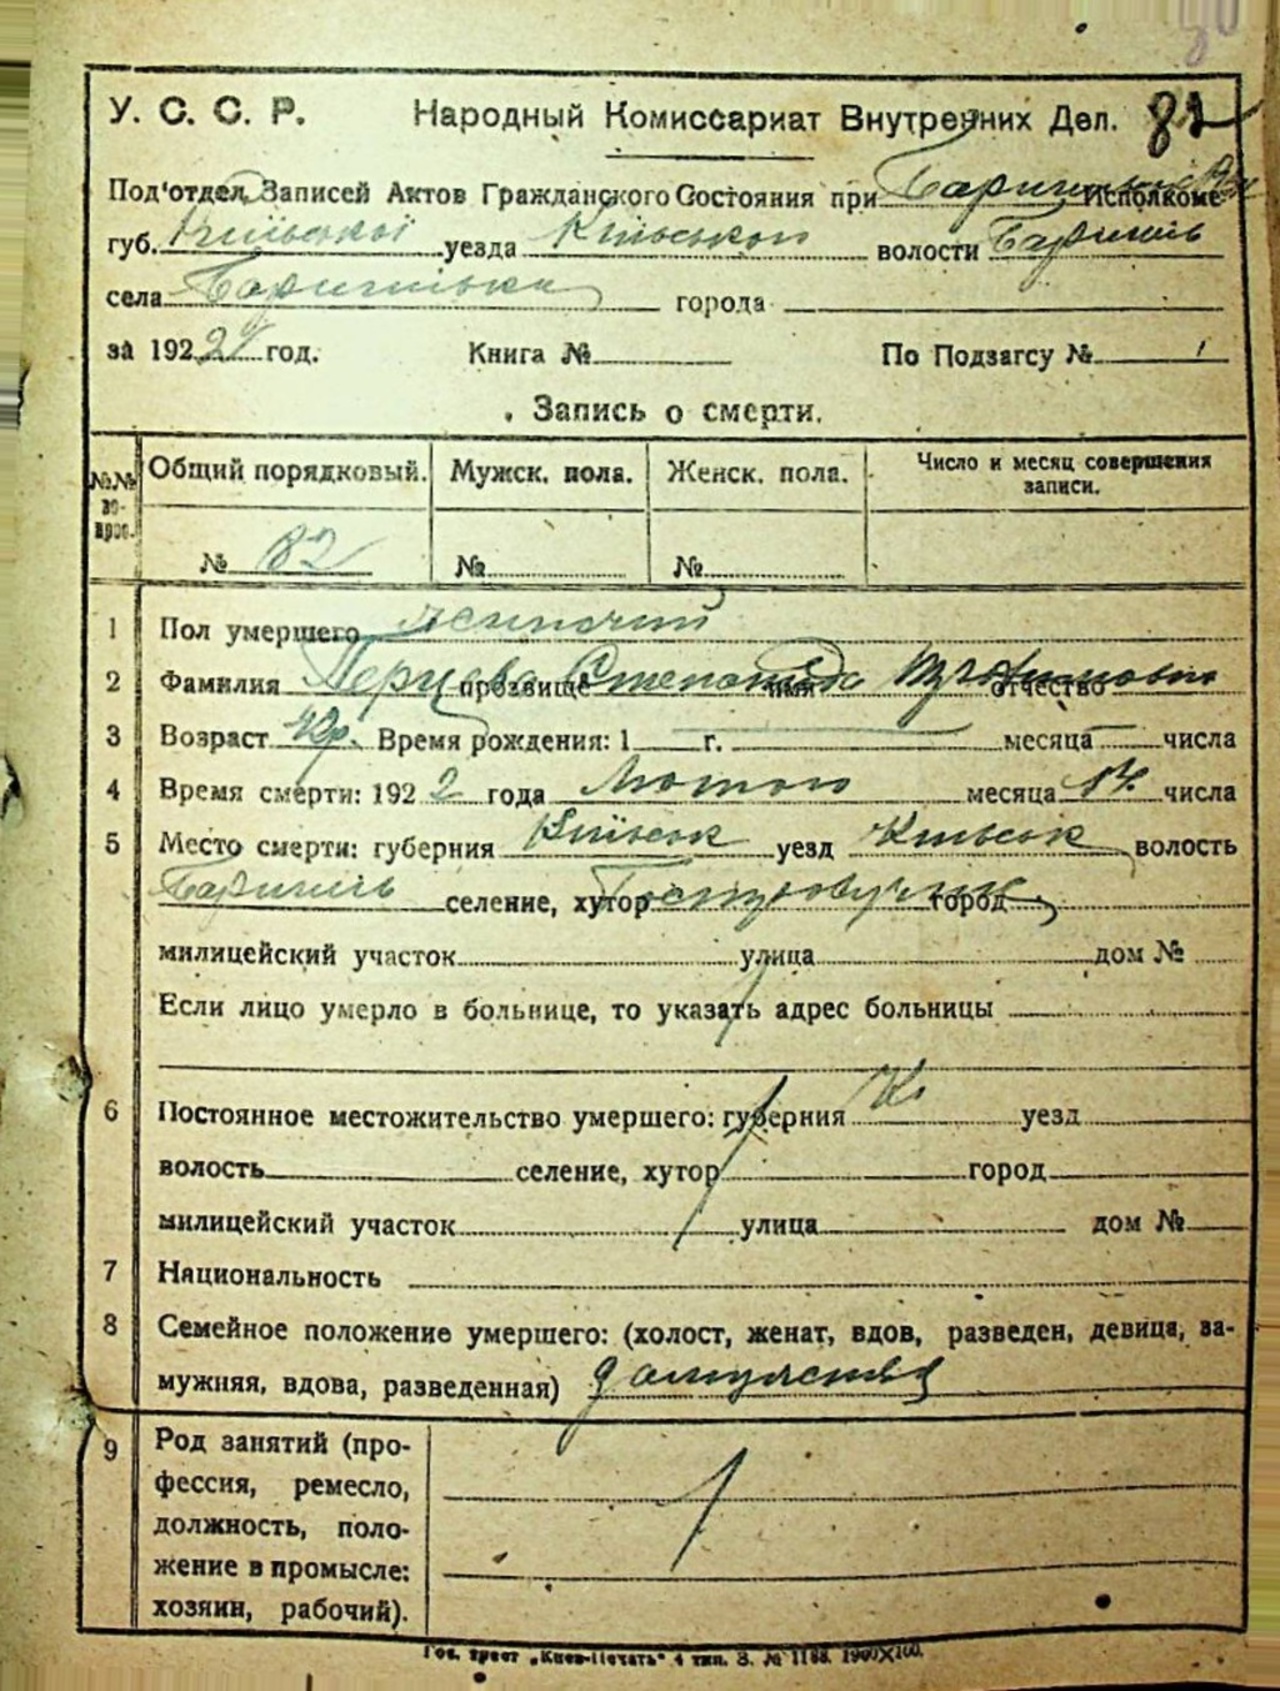 У. С. С. Р. Народный Комиссариат Внутренних Дел. 82
Под'отдел Записей Актов Гражданского Состояния при Исполкоме
губ. Київської уезда Київського волости Баришіль
села города
за 1922 год. Книга № По Подзагсу № 1
Запись о смерти.
№№ во-прос. Общий порядковый. Мужск. пола. Женск. пола. Число и месяц совершения записи.
№ 82 № №
1 Пол умершего жіночий
2 Фамилия Перцева прозвище Степанида имя отчество
3 Возраст 42р. Время рождения: 1 г. месяца числа
4 Время смерти: 1922 года Лютого месяца 14 числа
5 Место смерти: губерния Київськ уезд Київськ волость
Баришіль селение, хутор город
милицейский участок улица дом №
Если лицо умерло в больнице, то указать адрес больницы
6 Постоянное местожительство умершего: губерния уезд
волость селение, хутор город
милицейский участок улица дом №
7 Национальность
8 Семейное положение умершего: (холост, женат, вдов, разведен, девица, за-
мужняя, вдова, разведенная)
9 Род занятий (про-
фессия, ремесло,
должность, поло-
жение в промысле:
хозяин, рабочий).
Гос. трест „Киев-Печать" 4 тип. З. № 1188. 1900×100.